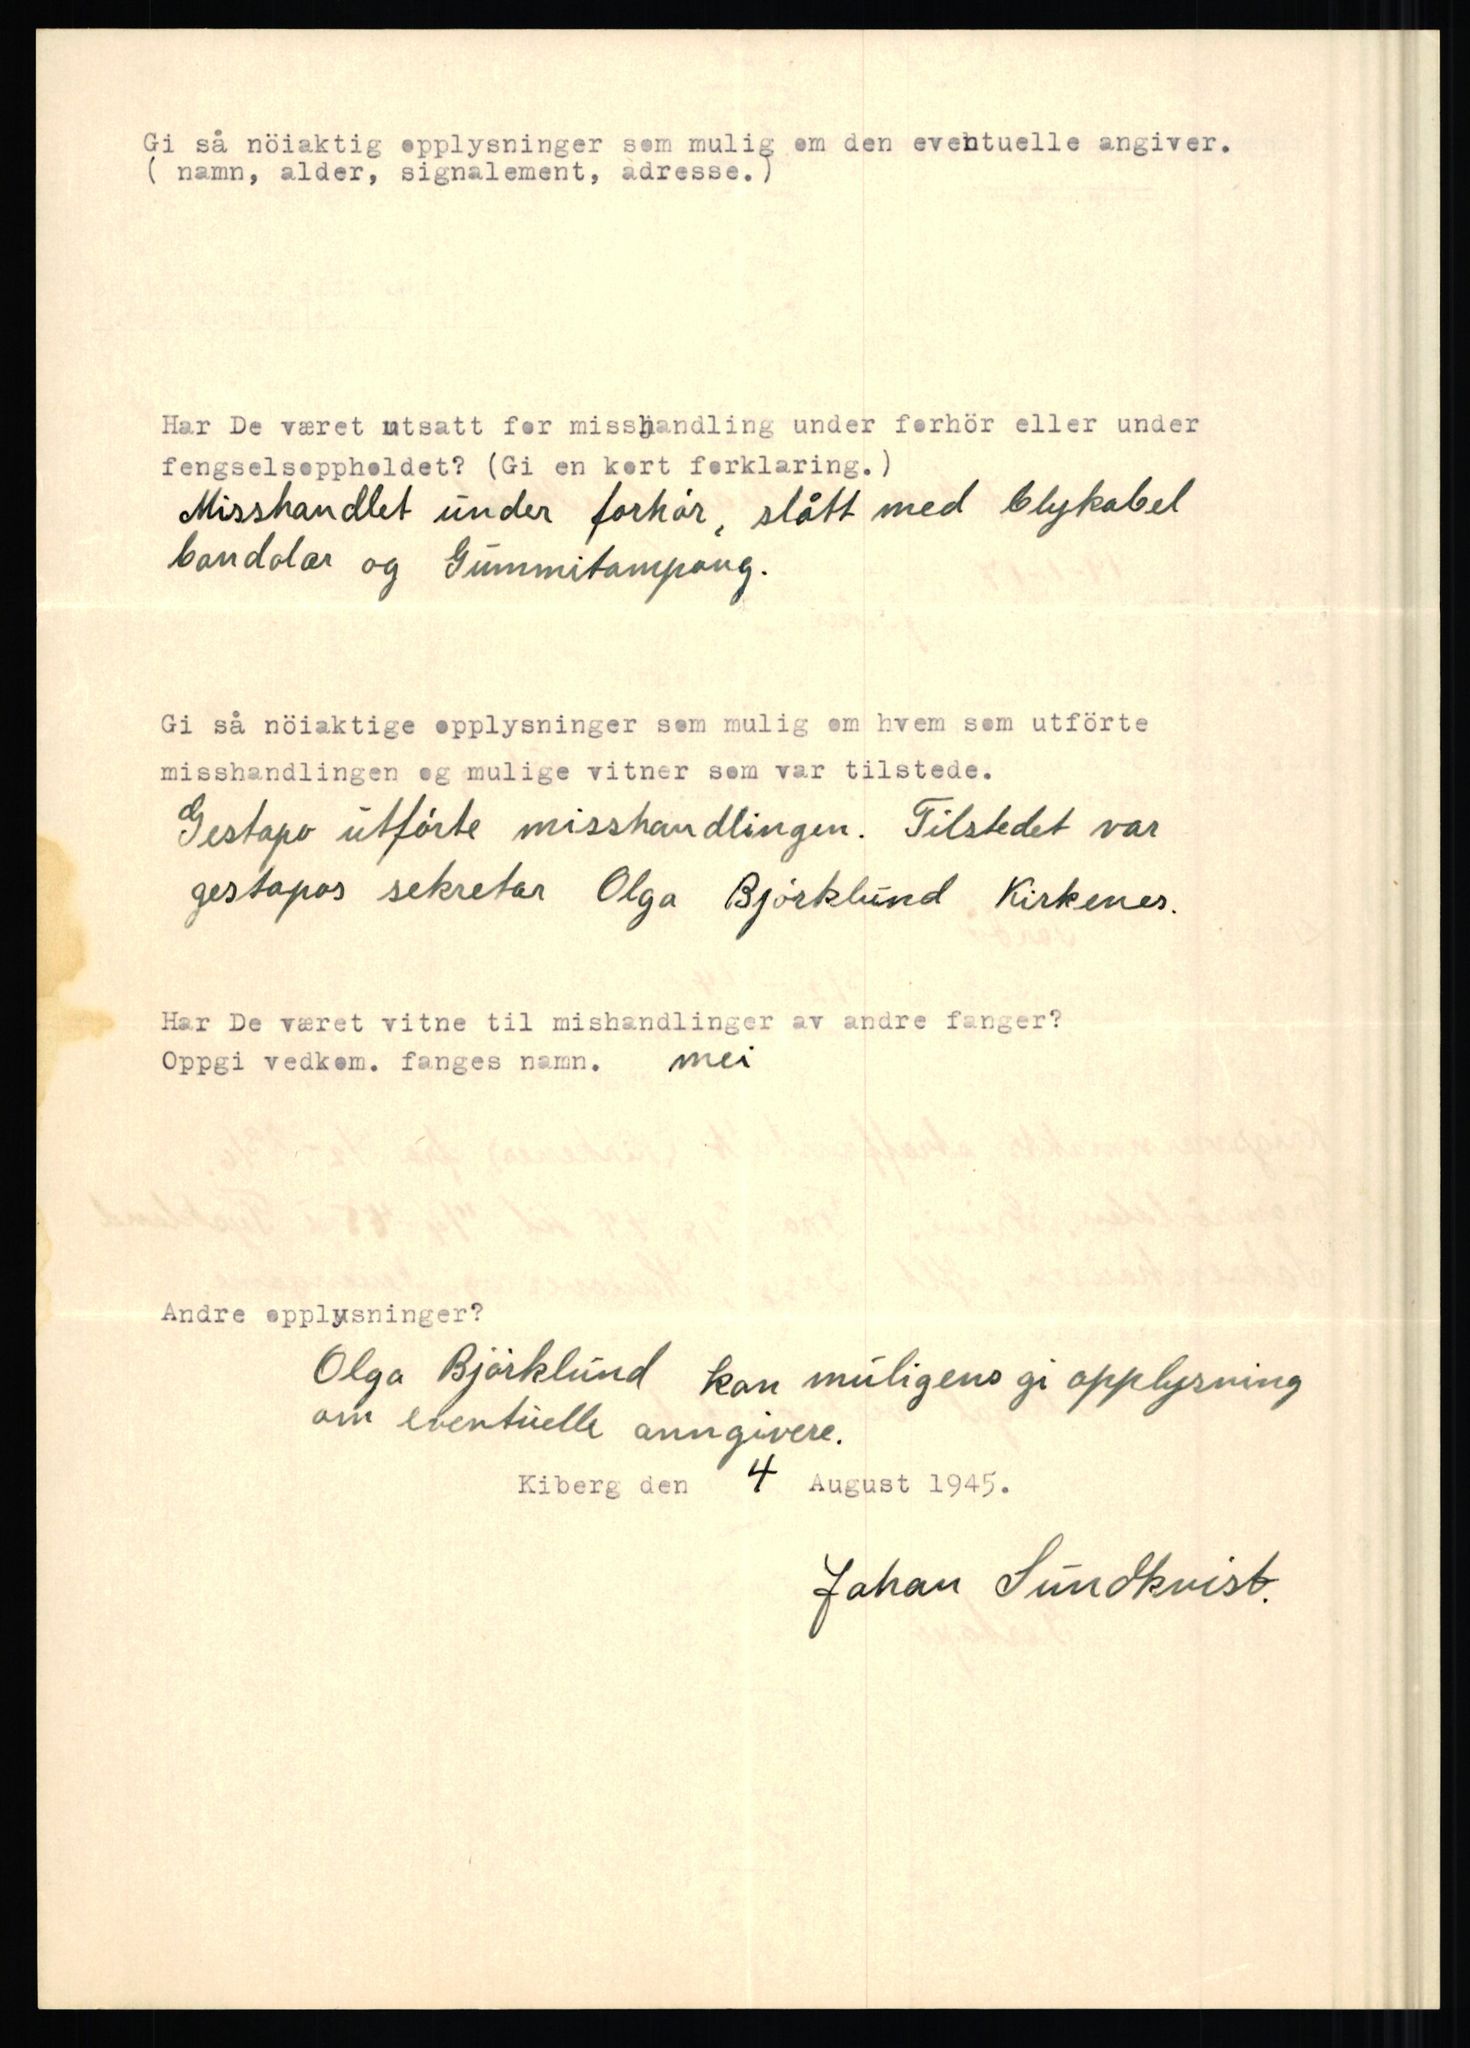 Gi så nöiaktig opplysninger som mulig om den eventuelle angiver.
( namn, alder, signalement, adresse.)
Har De været utsatt for misshandling under forhör eller under
fengselsoppholdet? (Gi en kort forklaring.)
Misshandlet under forhör, slått med blykabel
bandolær og Gummitampong.
Gi så nöiaktige opplysninger som mulig om hvem som utförte
misshandlingen og mulige vitner som var tilstede.
Gestapo utförte misshandlingen. Tilstedet var
gestapos sekretær Olga Björklund Kirkenes.
Har De været vitne til mishandlinger av andre fanger?
Oppgi vedkom. fanges namn. nei
Andre opplysninger?
Olga Björklund kan muligens gi opplysning
om eventuelle anngivere.
Kiberg den 4 August 1945.
Johan Sundkvist.